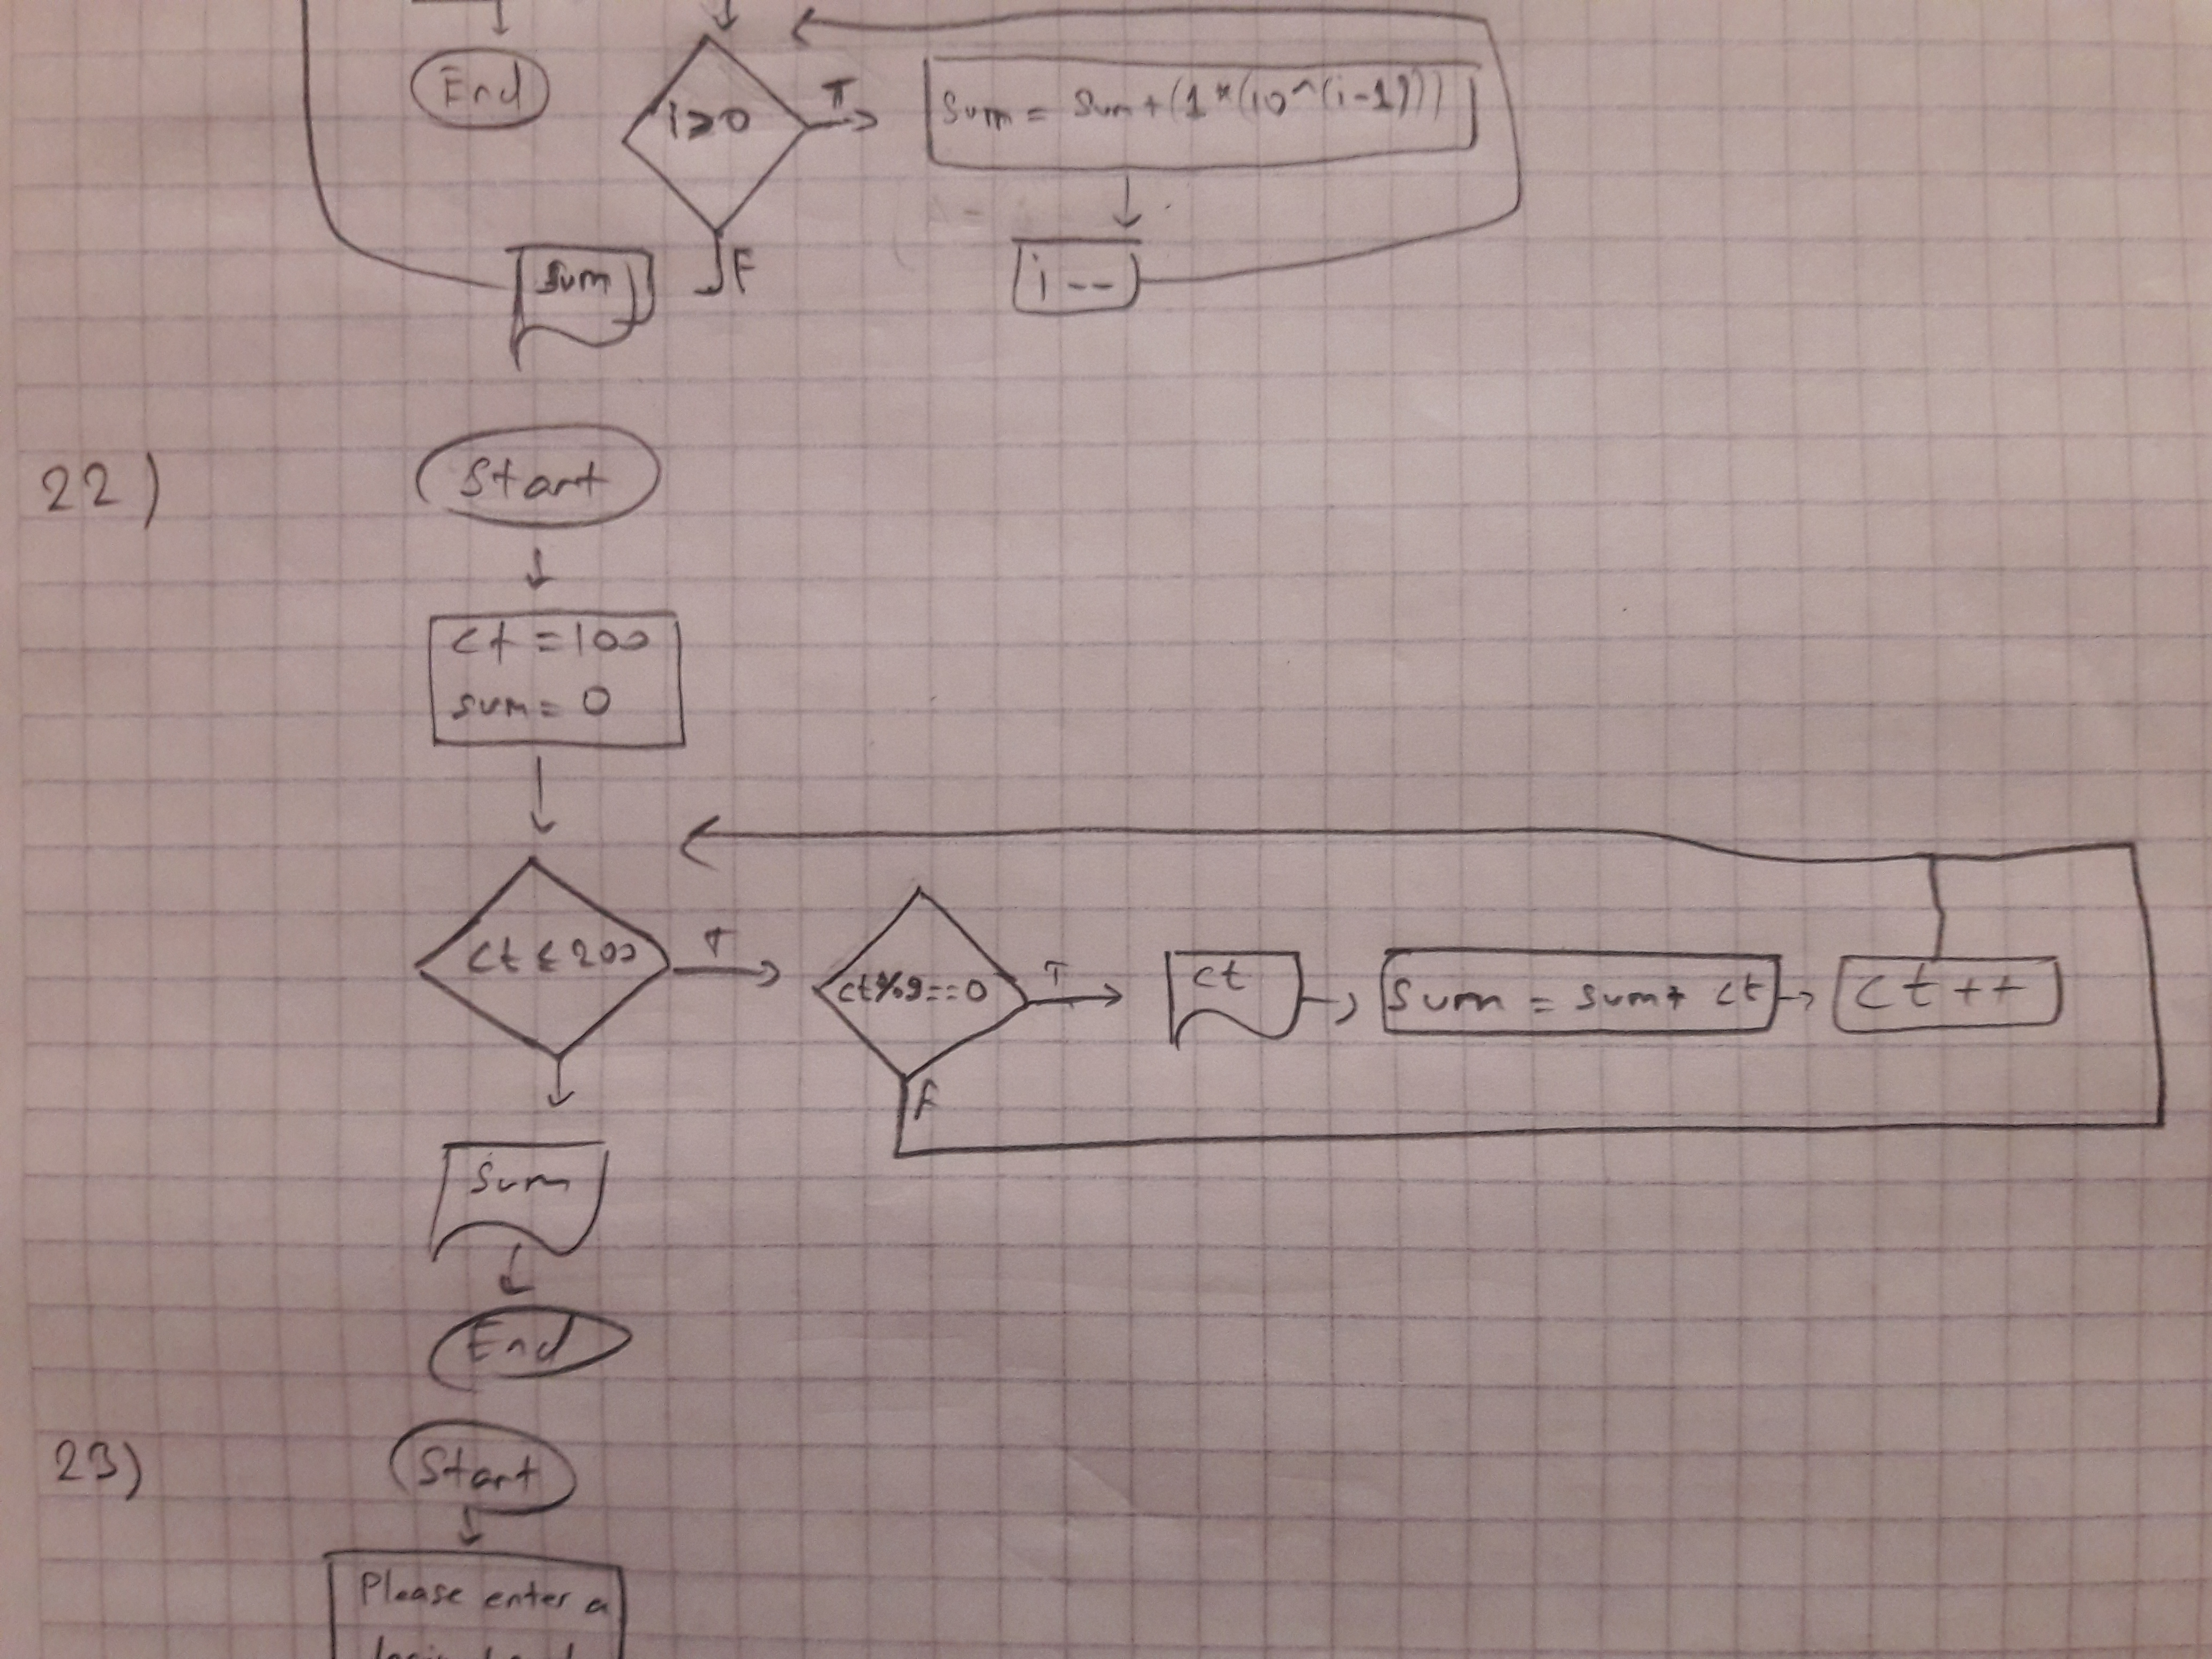 End
i>0
T
Sum = Sum+(1*(10^(i-1)))
F
Sum
i --
22)
Start
ct = 100
sum = 0
ct ≤ 200
T
ct%9==0
T
ct
Sum = sum+ ct
ct ++
F
Sum
End
23)
Start
Please enter a